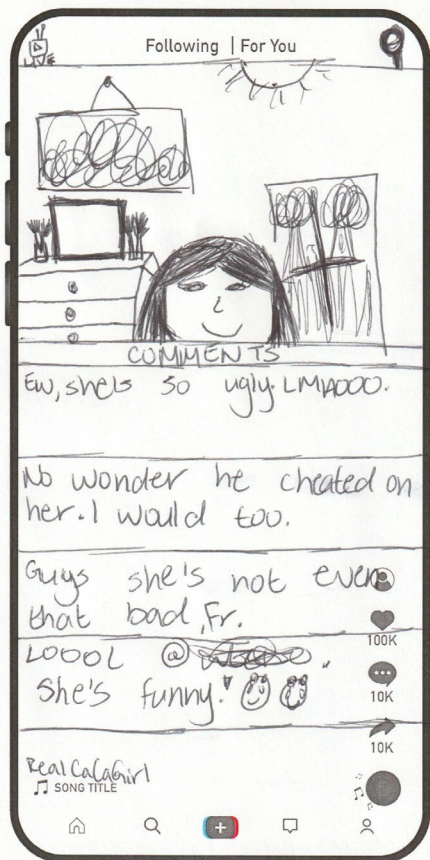 Following | For You
COMMENTS
Ew, she's so ugly. LMAOOO.
No wonder he cheated on
her. I would too.
Guys she's not even
that bad, Fr.
100K
LOOOL @
She's funny."
10K
10K
RealCaCaGirl
SONG TITLE